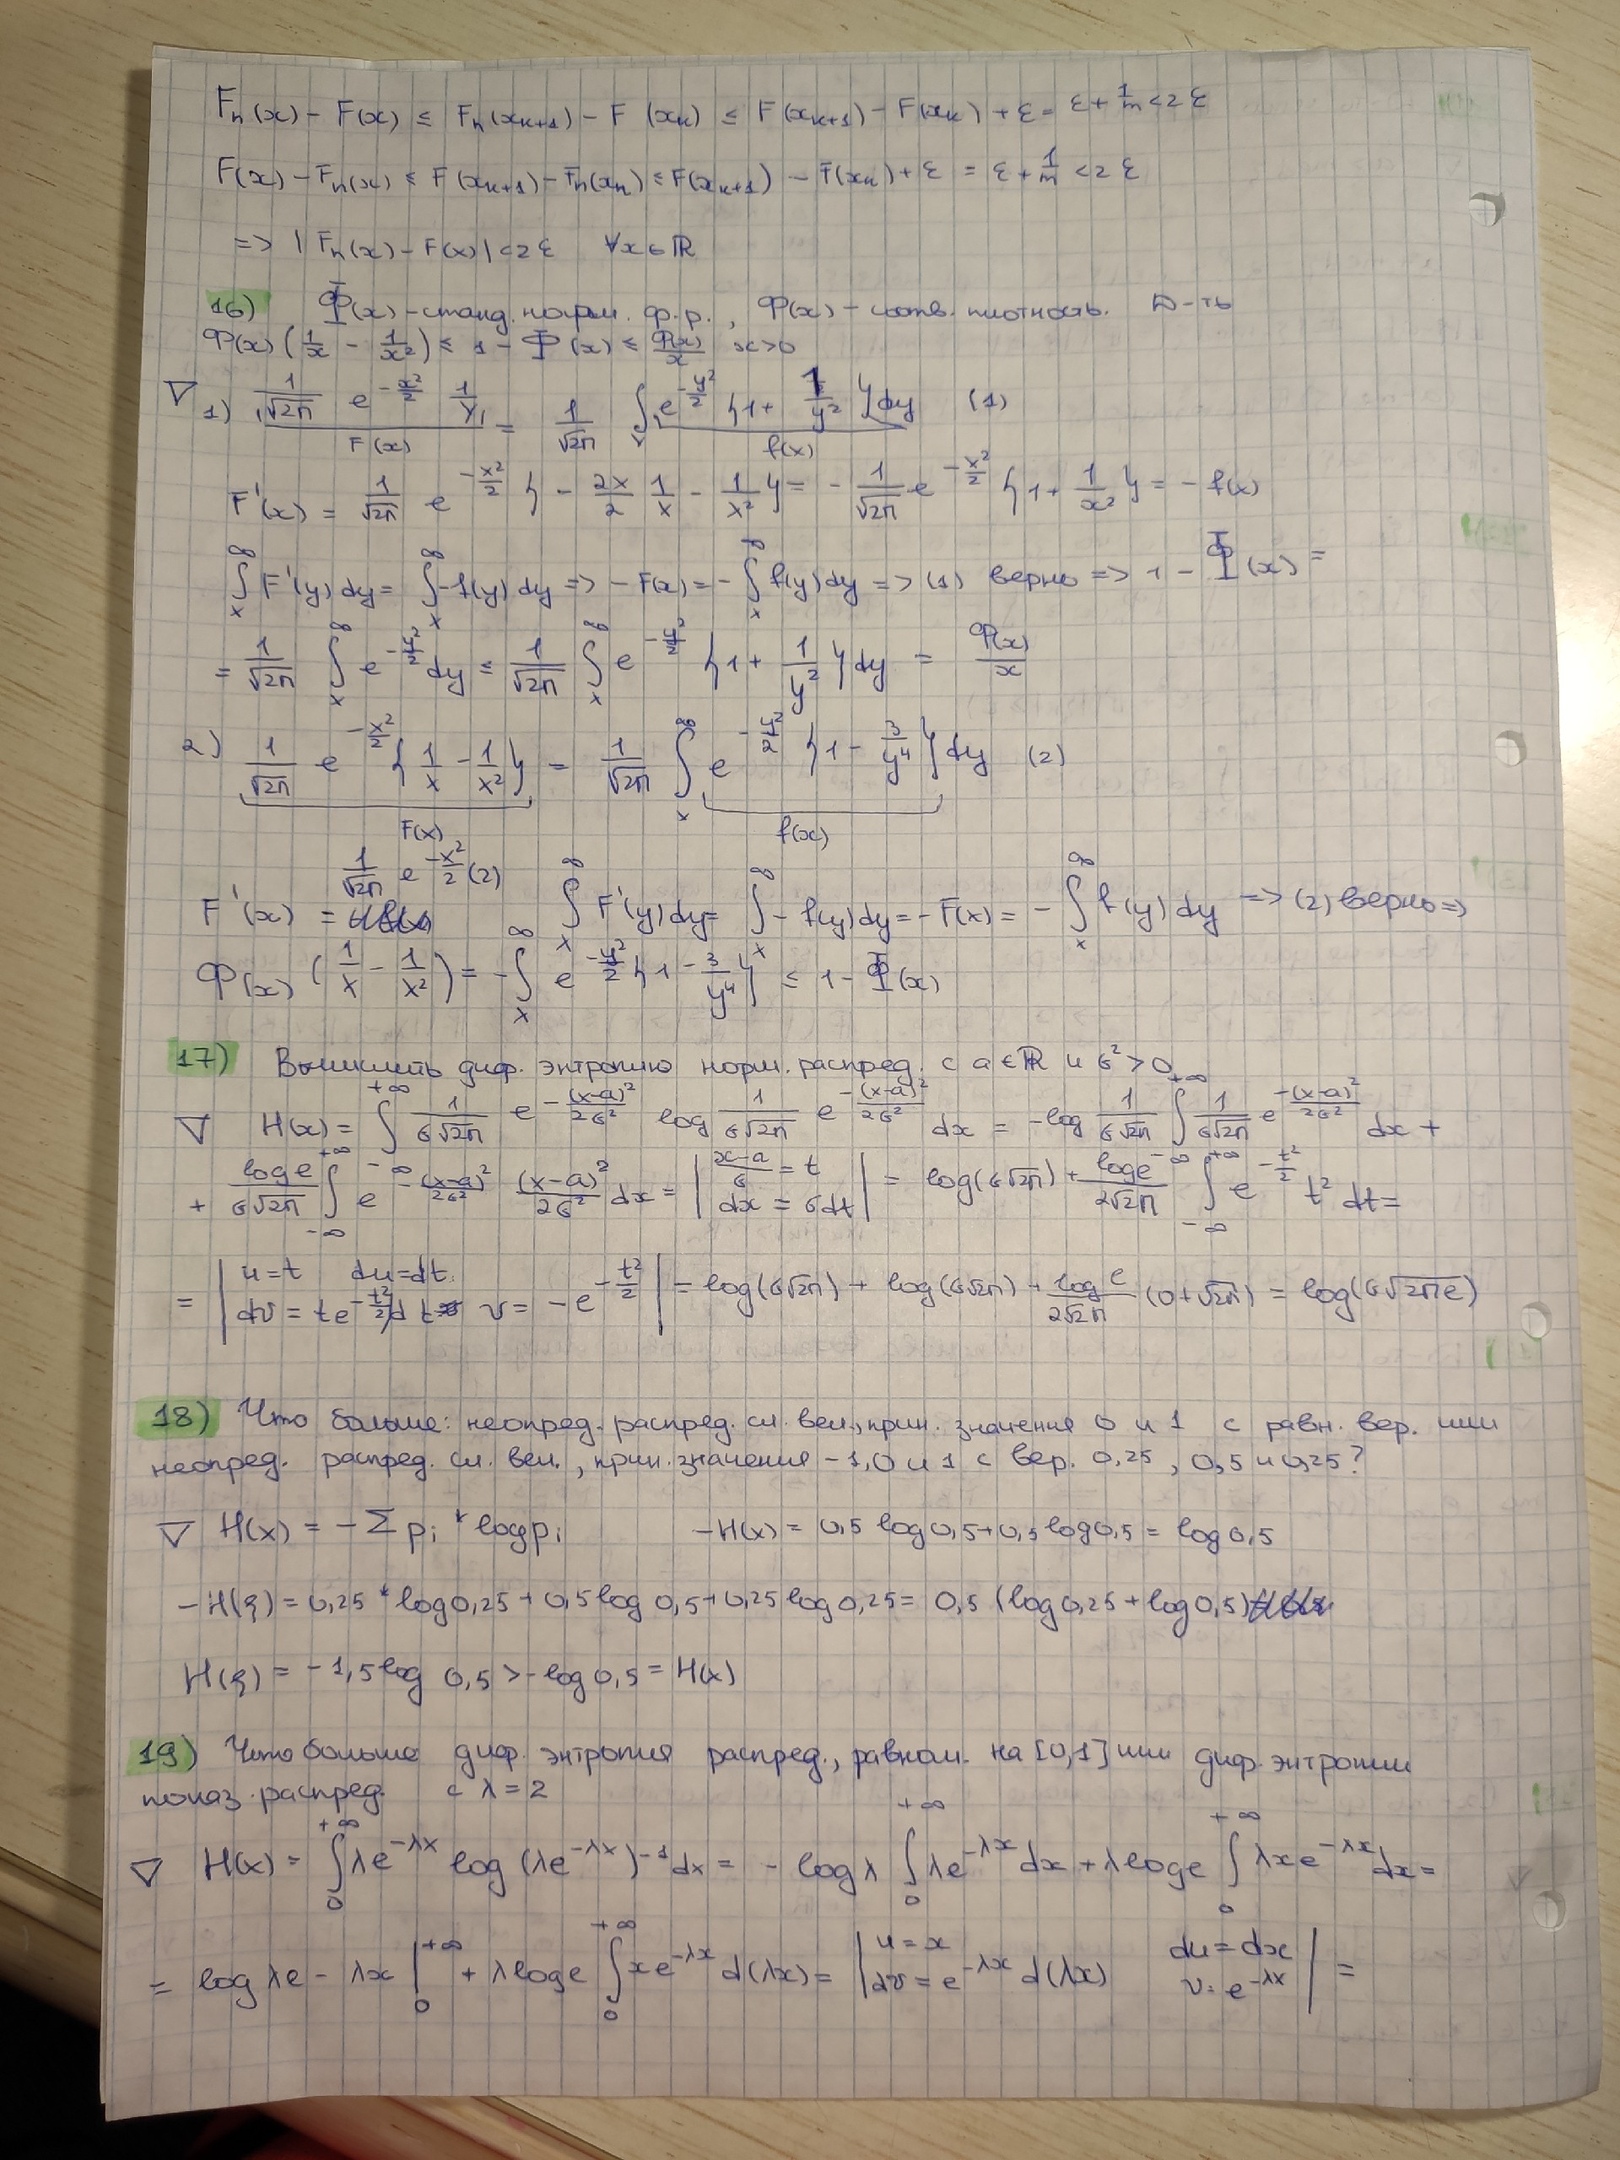 Fn(x) - F(x) ≤ Fn(xk+1) - F(xk) ≤ F(xk+1) - F(xk) + ε = ε + 1/m < 2ε
F(x) - Fn(x) ≤ F(xk+1) - Fn(xk) ≤ F(xk+1) - F(xk) + ε = ε + 1/m < 2ε
=> |Fn(x) - F(x)| < 2ε ∀x∈ℝ
16) Φ(x) - станд. норм. ф.р., φ(x) - соотв. плотность. Д-ть
φ(x) (1/x - 1/x²) ≤ 1 - Φ(x) ≤ φ(x)/x x>0
∇ 1) 1/√2π e^(-x²/2) 1/y = 1/√2π ∫ e^(-y²/2) {1 + 1/y²} dy (1)
F(x) f(x)
F'(x) = 1/√2π e^(-x²/2) {- 2x/2 1/x - 1/x²} = - 1/√2π e^(-x²/2) {1 + 1/x²} = - f(x)
∫_x^∞ F'(y) dy = ∫_x^∞ -f(y) dy => - F(x) = - ∫_x^∞ f(y) dy => (1) верно => 1 - Φ(x) =
= 1/√2π ∫_x^∞ e^(-y²/2) dy ≤ 1/√2π ∫_x^∞ e^(-y²/2) {1 + 1/y²} dy = φ(x)/x
2) 1/√2π e^(-x²/2) {1/x - 1/x²} = 1/√2π ∫_x^∞ e^(-y²/2) {1 - 3/y⁴} dy (2)
F(x) f(x)
F'(x) = 1/√2π e^(-x²/2) (2) ∫_x^∞ F'(y) dy = ∫_x^∞ - f(y) dy = - F(x) = - ∫_x^∞ f(y) dy => (2) верно =>
φ(x) (1/x - 1/x²) = - ∫_x^∞ e^(-y²/2) {1 - 3/y⁴} ≤ 1 - Φ(x)
17) Вычислить диф. энтропию норм. распред. с a∈ℝ и σ²>0
∇ H(x) = ∫_-∞^+∞ 1/σ√2π e^(-(x-a)²/2σ²) log 1/σ√2π e^(-(x-a)²/2σ²) dx = -log 1/σ√2π ∫_-∞^+∞ 1/σ√2π e^(-(x-a)²/2σ²) dx +
+ log e/σ√2π ∫_-∞^+∞ e^(-(x-a)²/2σ²) (x-a)²/2σ² dx = | (x-a)/σ = t dx = σdt | = log(σ√2π) + log e/2√2π ∫_-∞^+∞ e^(-t²/2) t² dt =
= | u=t du=dt dv = te^(-t²/2) dt v = -e^(-t²/2) | = log(σ√2π) + log(σ√2π) + log e/2√2π (0+√2π) = log(σ√2πe)
18) Что больше: неопред. распред. сл. вел., прин. значения 0 и 1 с равн. вер. или
неопред. распред. сл. вел., прин. значения -1, 0 и 1 с вер. 0,25, 0,5 и 0,25?
∇ H(x) = - Σ pi * log pi -H(x) = 0,5 log 0,5 + 0,5 log 0,5 = log 0,5
-H(ξ) = 0,25 * log 0,25 + 0,5 log 0,5 + 0,25 log 0,25 = 0,5 (log 0,25 + log 0,5)
H(ξ) = - 1,5 log 0,5 > - log 0,5 = H(x)
19) Что больше диф. энтропия распред., равном. на [0,1] или диф. энтропии
показ. распред. с λ = 2
∇ H(x) = ∫_0^+∞ λe^(-λx) log (λe^(-λx))^-1 dx = - log λ ∫_0^+∞ λe^(-λx) dx + λ log e ∫_0^+∞ λxe^(-λx) dx =
= log λe - λx |_0^+∞ + λ log e ∫_0^+∞ xe^(-λx) d(λx) = | u = x du = dx dv = e^(-λx) d(λx) v = e^(-λx) | =